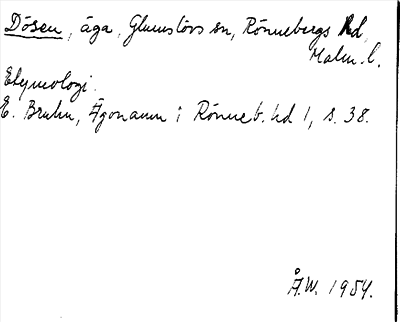 Dösen, äga, Glumslövs sn, Rönnebergs hd,
Malm. l.
Etymologi.
E. Bruhn, Ägonamn i Rönneb. hd 1, s. 38.
Å.W. 1954.